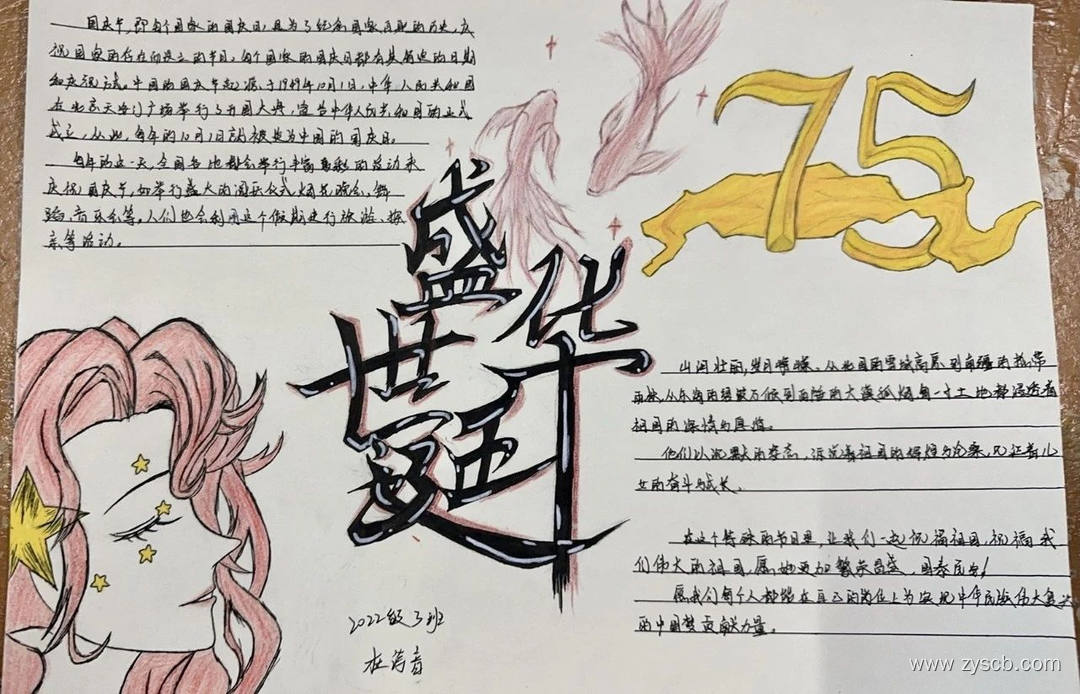 国庆节，即每个国家的国庆日，是为了纪念国家的历史，庆
祝国家的存在而设立的节日，每个国家的国庆日都有其特定的日期
和庆祝方式。中国的国庆节起源于1949年10月1日，中华人民共和国
在北京天安门广场举行了开国大典，宣告中华人民共和国的正式
成立，从此，每年的10月1日就被定为中国的国庆日。
每年的这一天，全国各地都会举行丰富多彩的活动来
庆祝国庆节，如举行盛大的阅兵仪式，烟花晚会、舞
蹈、音乐会等。人们也会利用这个假期进行旅游、探
亲等活动。
75
盛
世华
诞
山河壮丽，岁月峥嵘。从北国的雪域高原到南疆的热带
雨林，从东海的碧波万顷到西陲的大漠孤烟每一寸土地都浸透着
祖国的深情与厚谊。
他们以沉默的姿态，诉说着祖国的辉煌与沧桑，见证着儿
女的奋斗与成长。
在这个特殊的节日里，让我们一起祝福祖国，祝福我
们伟大的祖国，愿她更加繁荣昌盛，国泰民安！
愿我们每个人都能在自己的岗位上为实现中华民族伟大复兴
的中国梦贡献力量。
2022级3班
www.zyscb.com